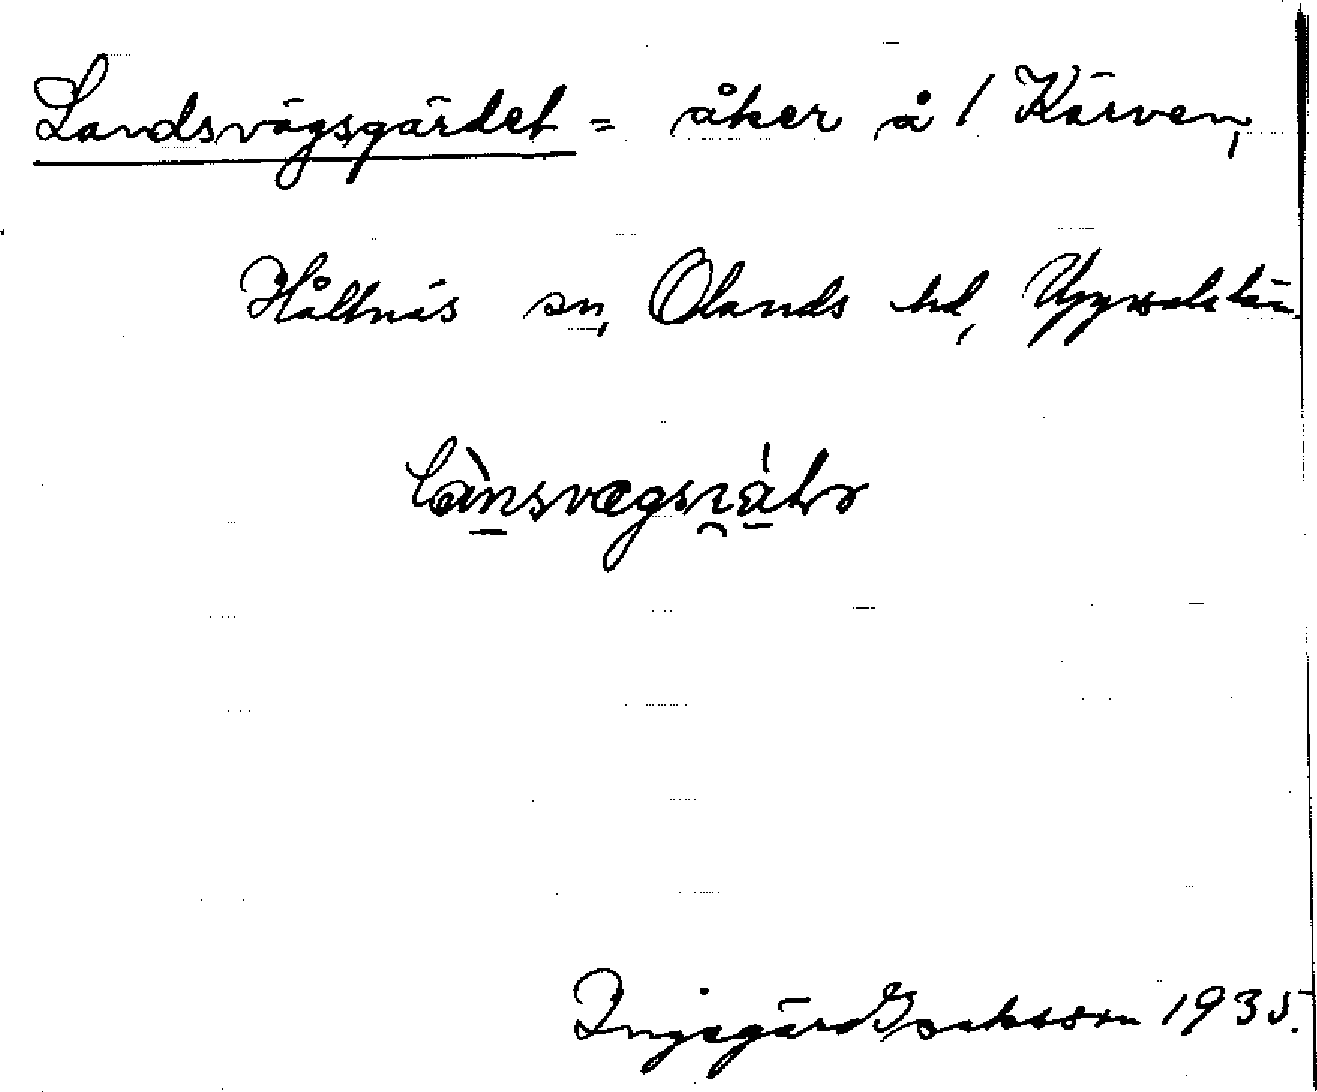 Landsvägsgärdet = åker å 1 Kärven,
Hållnäs sn, Olands hd, Uppsala län.
Ingegärd Isaksson 1935.